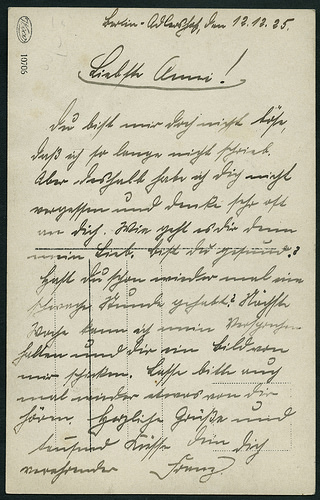 10705
Berlin-Adlershof, den 12.12.25.
Liebste Anni!
Du bist mir doch nicht böse,
daß ich so lange nicht schrieb.
Aber deshalb habe ich Dich nicht
vergessen und denke sehr oft
an Dich. Wie geht es dir denn
mein Lieb. Bist du gesund?
Hast du schon wieder mal eine
schwache Stunde gehabt? Nächste
Woche kann ich mein Versprechen
halten und dir ein Bild von
mir schicken. Lasse bitte auch
mal wieder etwas von dir
hören. Herzliche Grüße und
tausend Küsse Dein Dich
verehrender Franz.